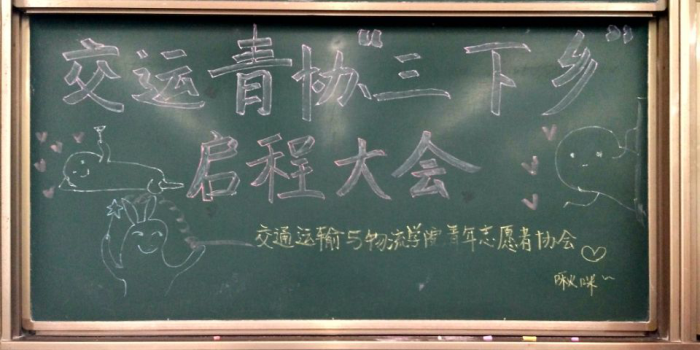 交运青协“三下乡”
启程大会
交通运输与物流学院青年志愿者协会
啾咪~